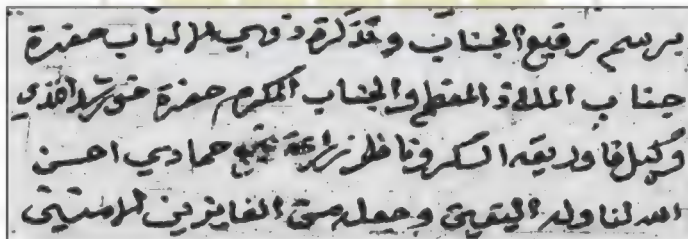 برسم رفيع الجناب وتذكرة ذوي الالباب حضرة
جناب الملاذ المعظم والجناب المكرم حضرة خورشد افندي
وكيل فاوريقه السكر وناظر زراعة نجع حمادي احسن
الله لنا وله اليقين وجعله من الفايزين الامنين